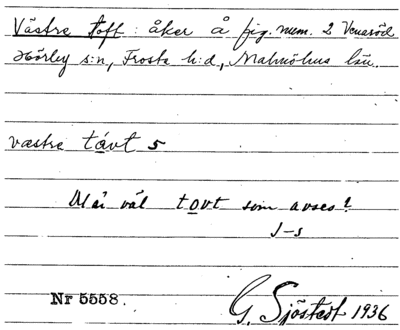 Västre toft: åker å fig. num. 2 Venaröd
Hörby s:n, Frosta h:d, Malmöhus län.
væstre távt 5
Må väl tovt som avses?
J-s
Nr 5558.
G. Sjöstedt 1936